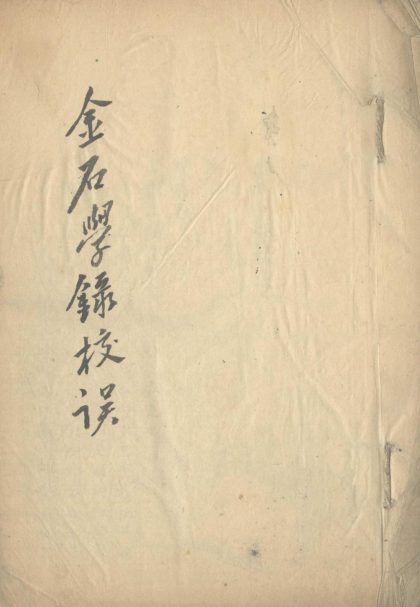 金石學錄校误